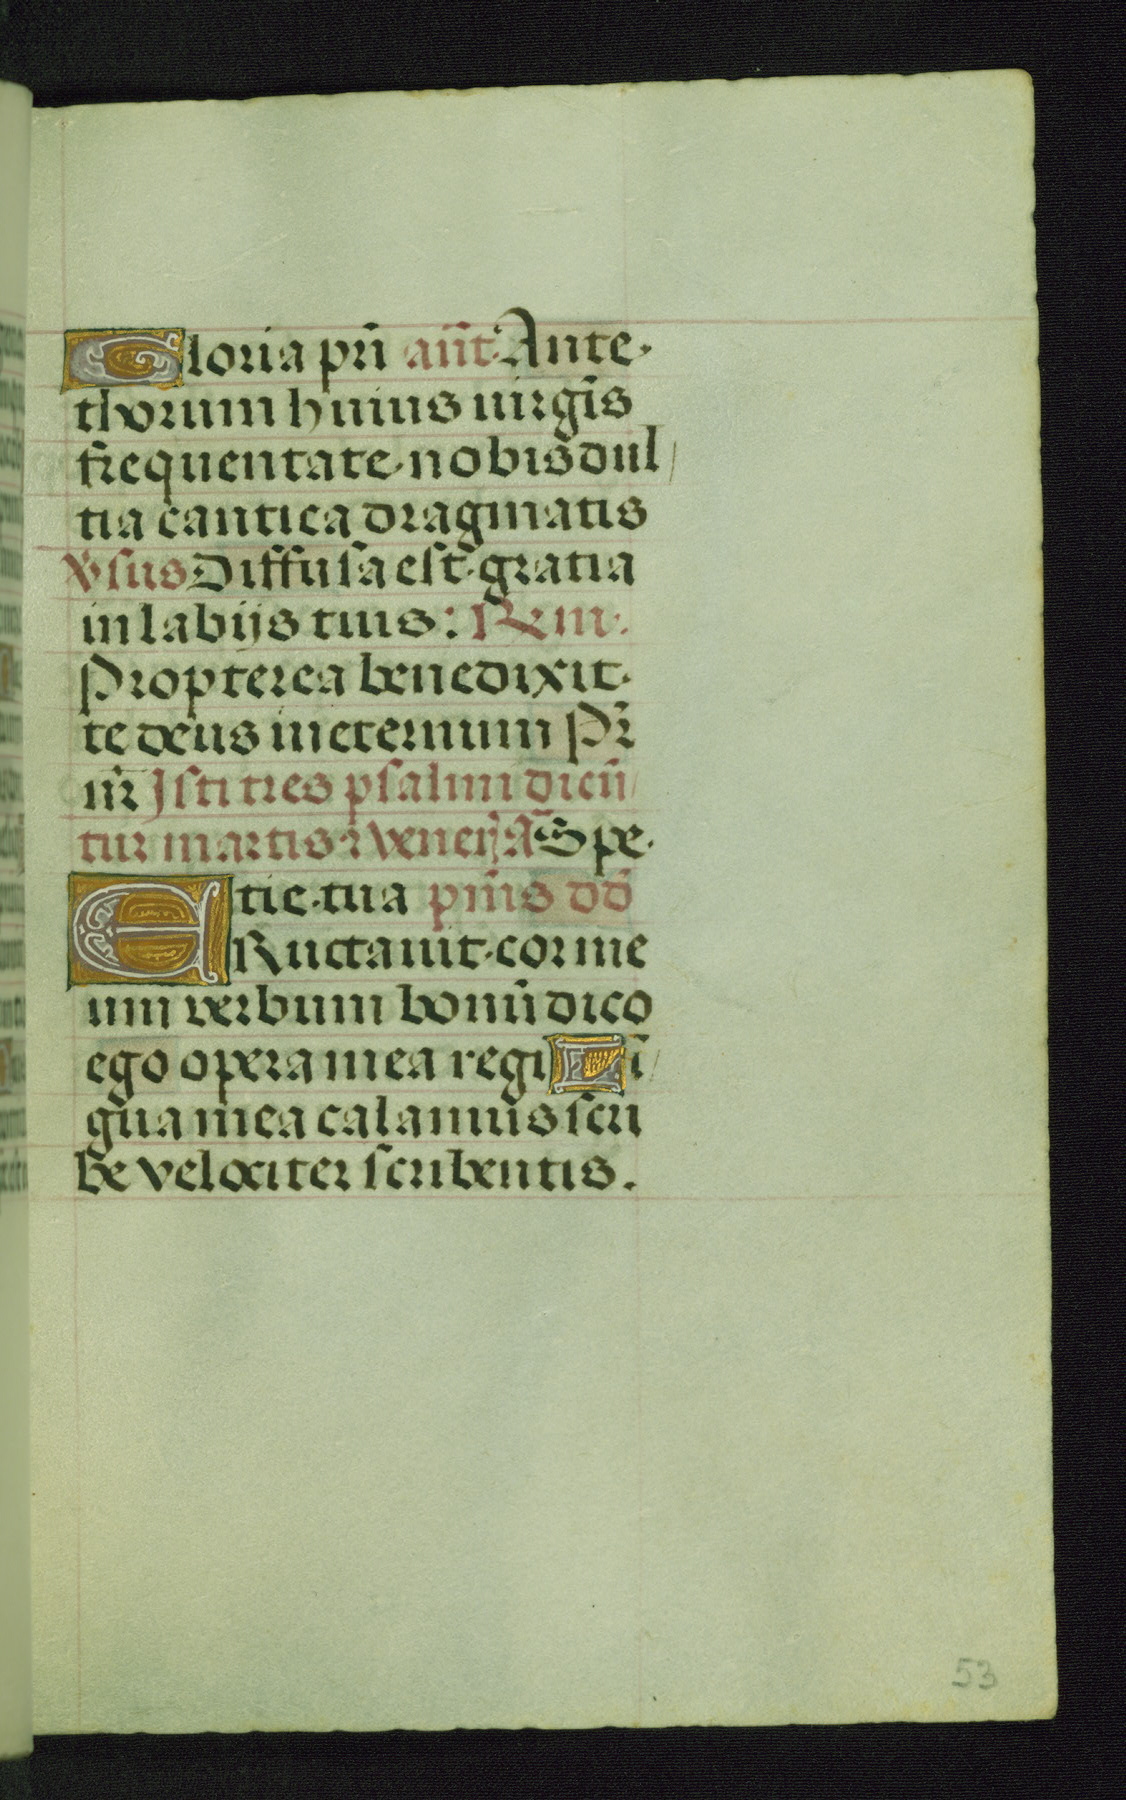 Gloria pr̄i an̄t Ante
thorum huius uirgīs
frequentate nobis dul
tia cantica dragmatis
v̄sus Diffusa est gratia
in labijs tuis: Rem.
Propterea benedixit
te deus in eternum Pr̄
nr̄ Isti tres psalmi dicū
tur martis ⁊ veneris A Spe
tie tua pm̄s dd̄
ERuctauit cor me
um verbum bonū dico
ego opera mea regi Lī
gua mea calamus scri
be velociter scribentis.
53